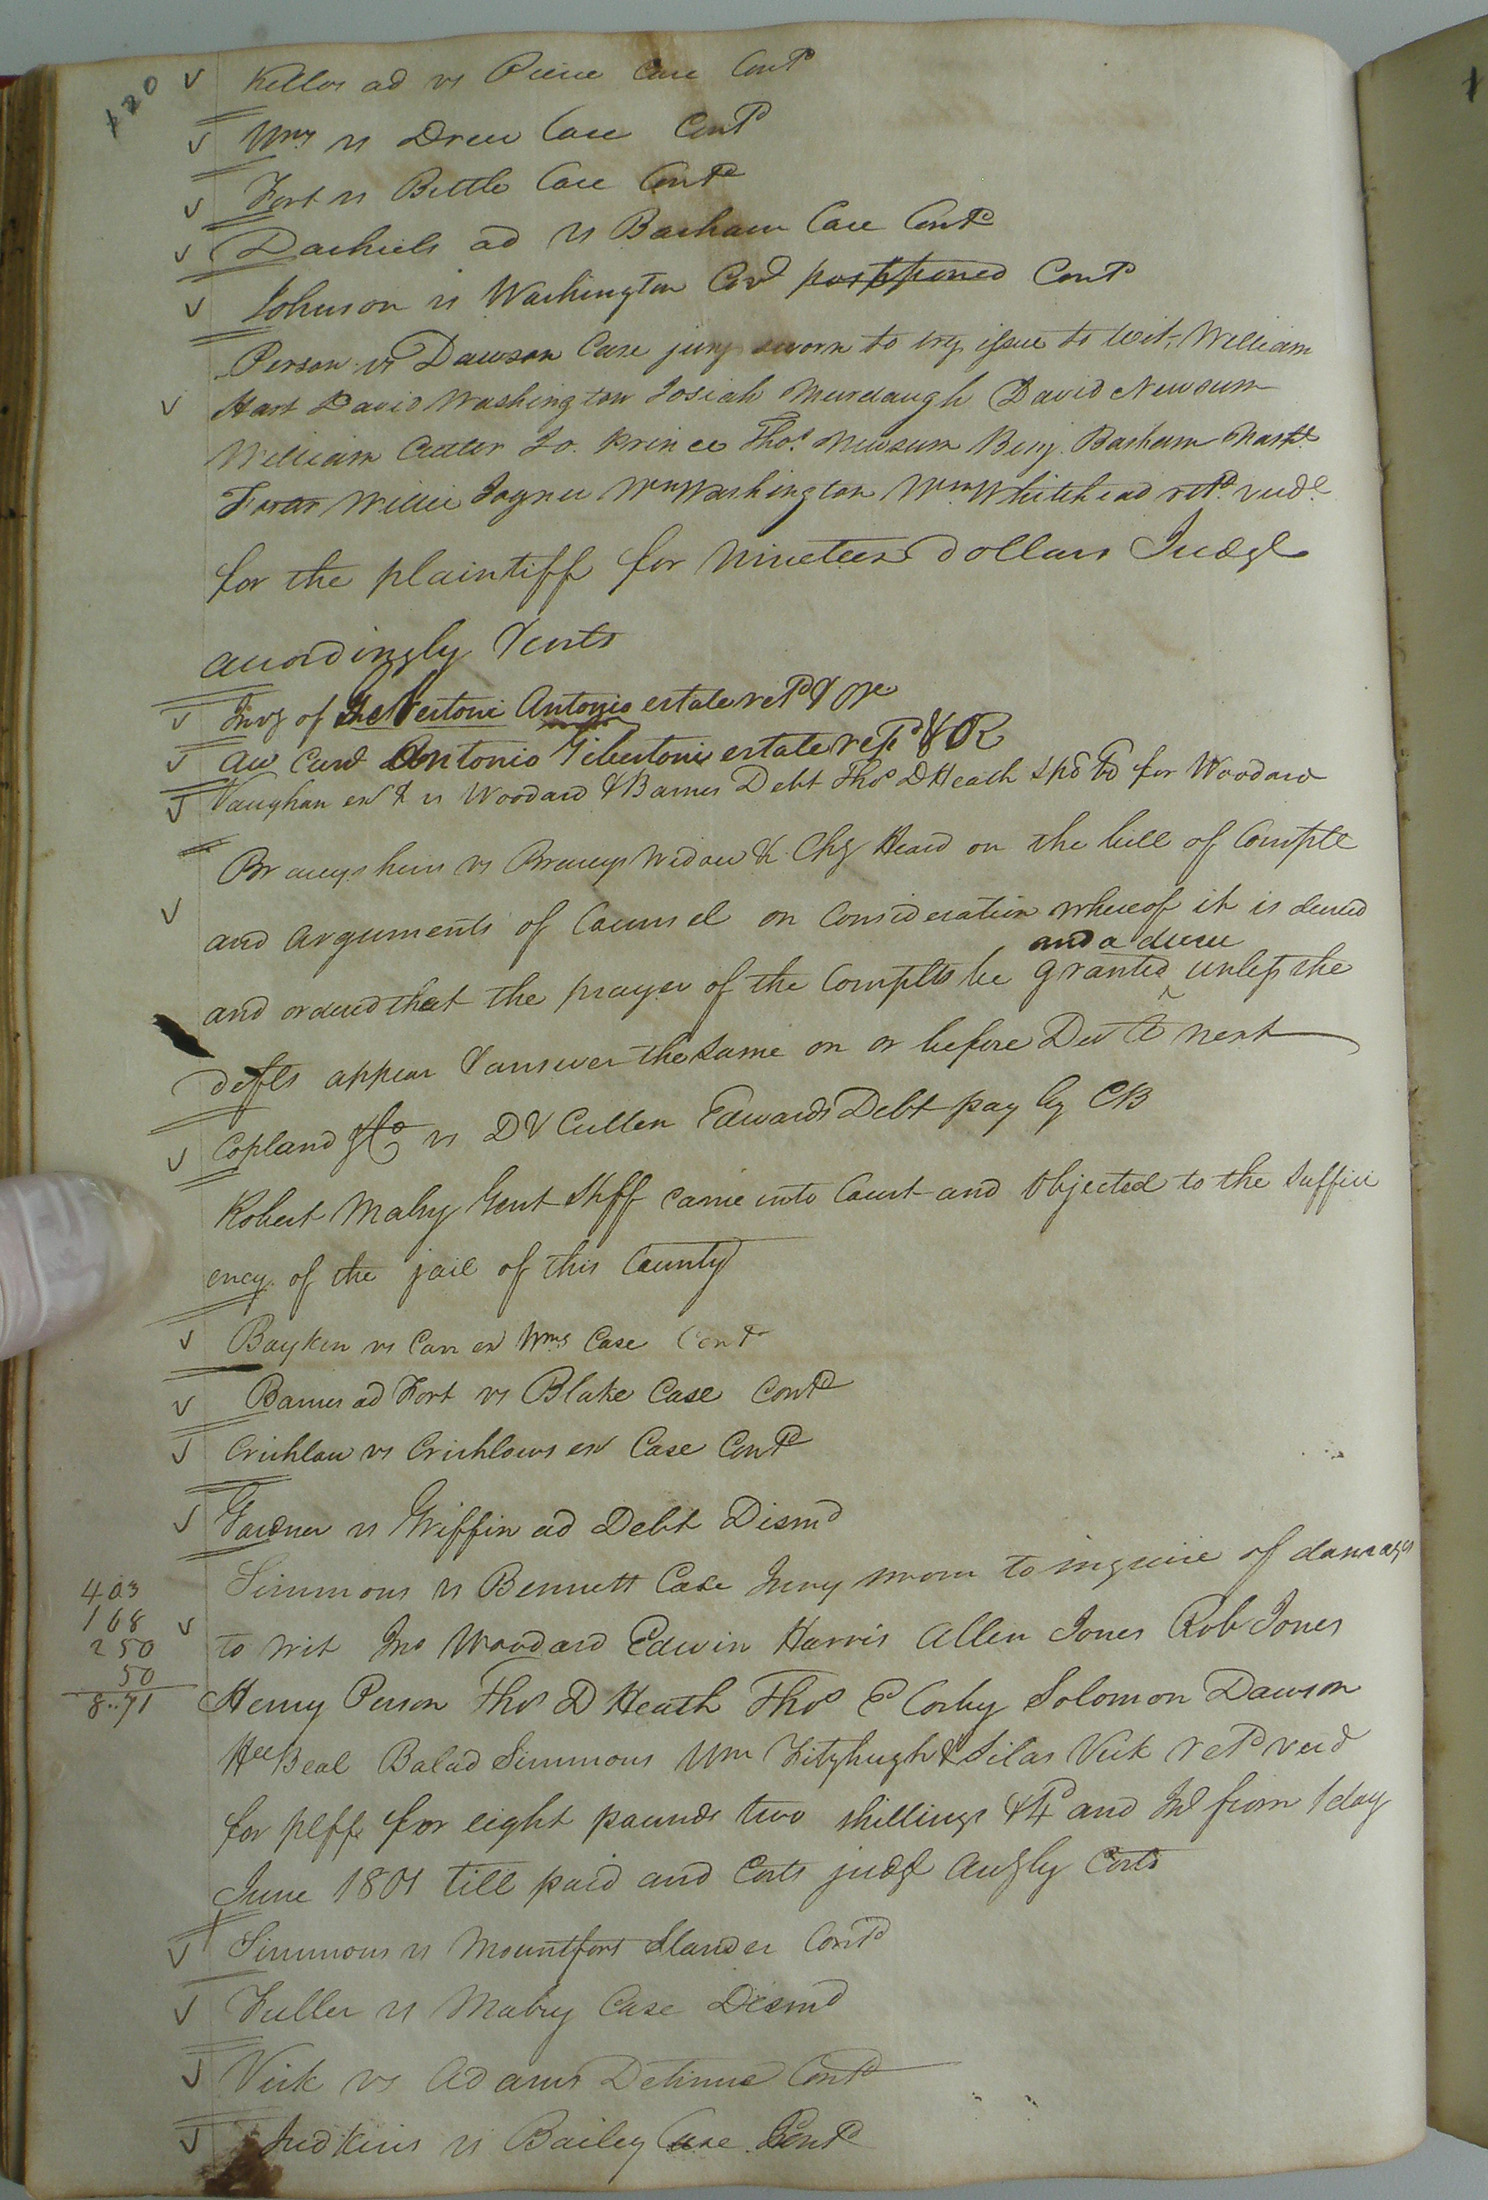 120
Kellos ad vs Pierce Case Contd
Wms vs Drew Case Contd
Fort vs Bittle Case Contd
Dashiels ad vs Barham Case Contd
Johnson vs Washington Cov postponed Contd
Person vs Dawson Case jury sworn to try issue to wit, William
Hart David Washington Josiah Murdaugh David Newsum
William Cutler Jo. Prince Thos. Newsum Benj. Barham
Foster Willie Joyner Wm Washington Wm Whitehead retd. verdt.
for the plaintiff for nineteen dollars Judgt
accordingly & costs
Invy of Antonio estate retd & OR
Acc Curt Antonio Gibertoni estate retd & OR
Vaughan exr & vs Woodard & Barnes Debt Thos D Heath spe bd for Woodard
vs Widow &c Chy Heard on the bill of Complt
and arguments of Counsel on Consideration whereof it is decreed
and a decree
and ordered that the prayer of the Complts be granted ^ unless the
defts appear & answer the same on or before Dec Ct next
Copland & Co vs D & Cullen Edwards Debt pay by CB
Robert Mabry Gent Shff came into Court and Objected to the suffici
ency of the jail of this County
Boykin vs Carr exr Wms Case Contd
Barnes ad Fort vs Blake Case Contd
Crichlow vs Crichlows exr Case Contd
Gardner vs Griffin ad Debt Dismd
Simmons vs Bennett Case Jury sworn to inquire of damages
403
168
250
50
8..71
to wit Jno Woodard Edwin Harris Allen Jones Rob Jones
Henry Person Thos D Heath Thos E Corby Solomon Dawson
Beal Balad Simmons Wm Fitzhugh & Silas Vick retd verd
for plff for eight pounds two shillings & 4d and Int from 1 day
June 1801 till paid and Costs judgt Accgly Costs
Simmons vs Mountfort Slander Contd
Fuller vs Mabry Case Dismd
Vick vs Adams Detinue Contd
Judkins vs Bailey Case Contd